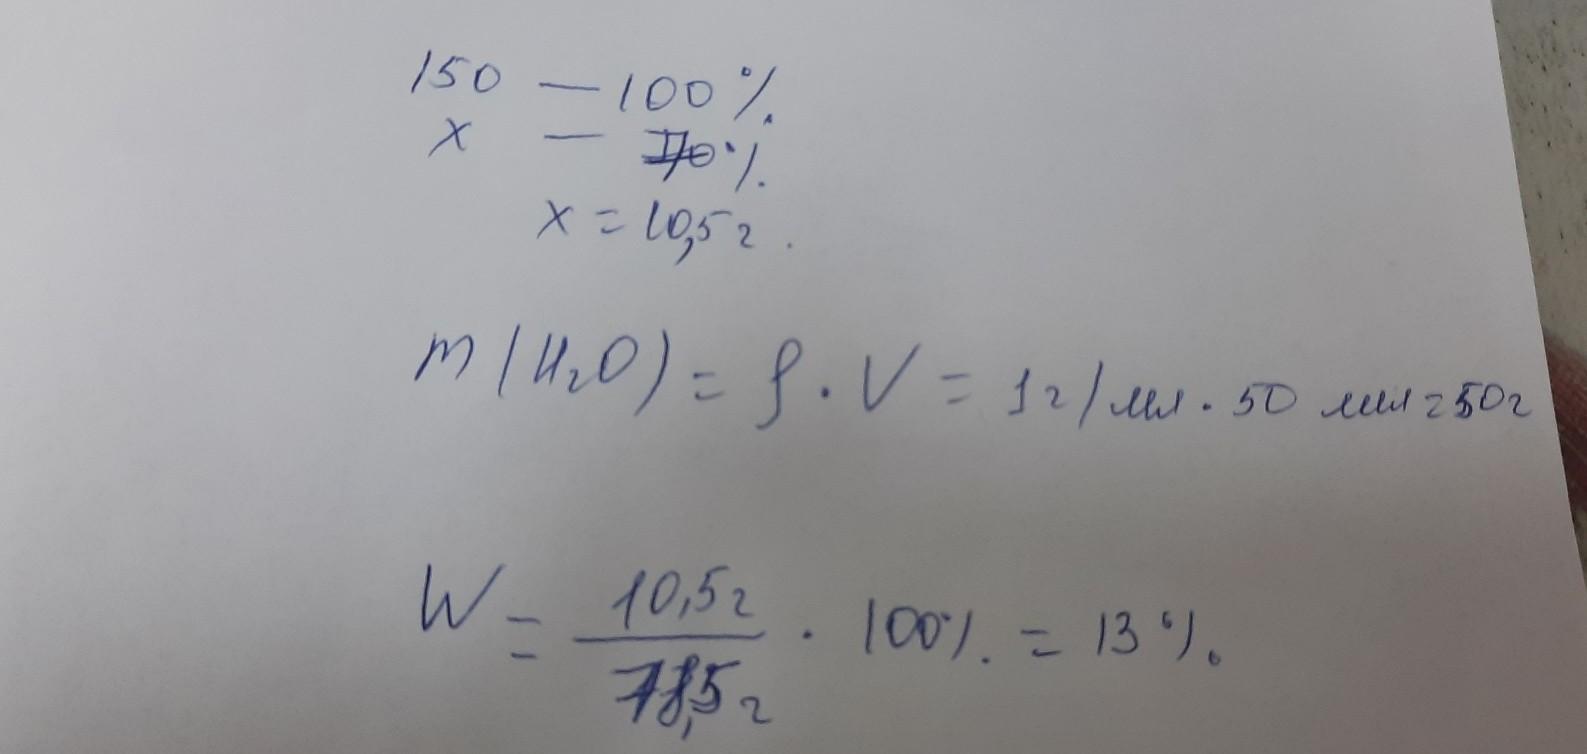 150 — 100 %.
x — 70 %.
x = 10,5 г.
m (H₂O) = ρ · V = 1 г/мл · 50 мл = 50 г
W = 10,5 г / 78,5 г · 100 %. = 13 %.